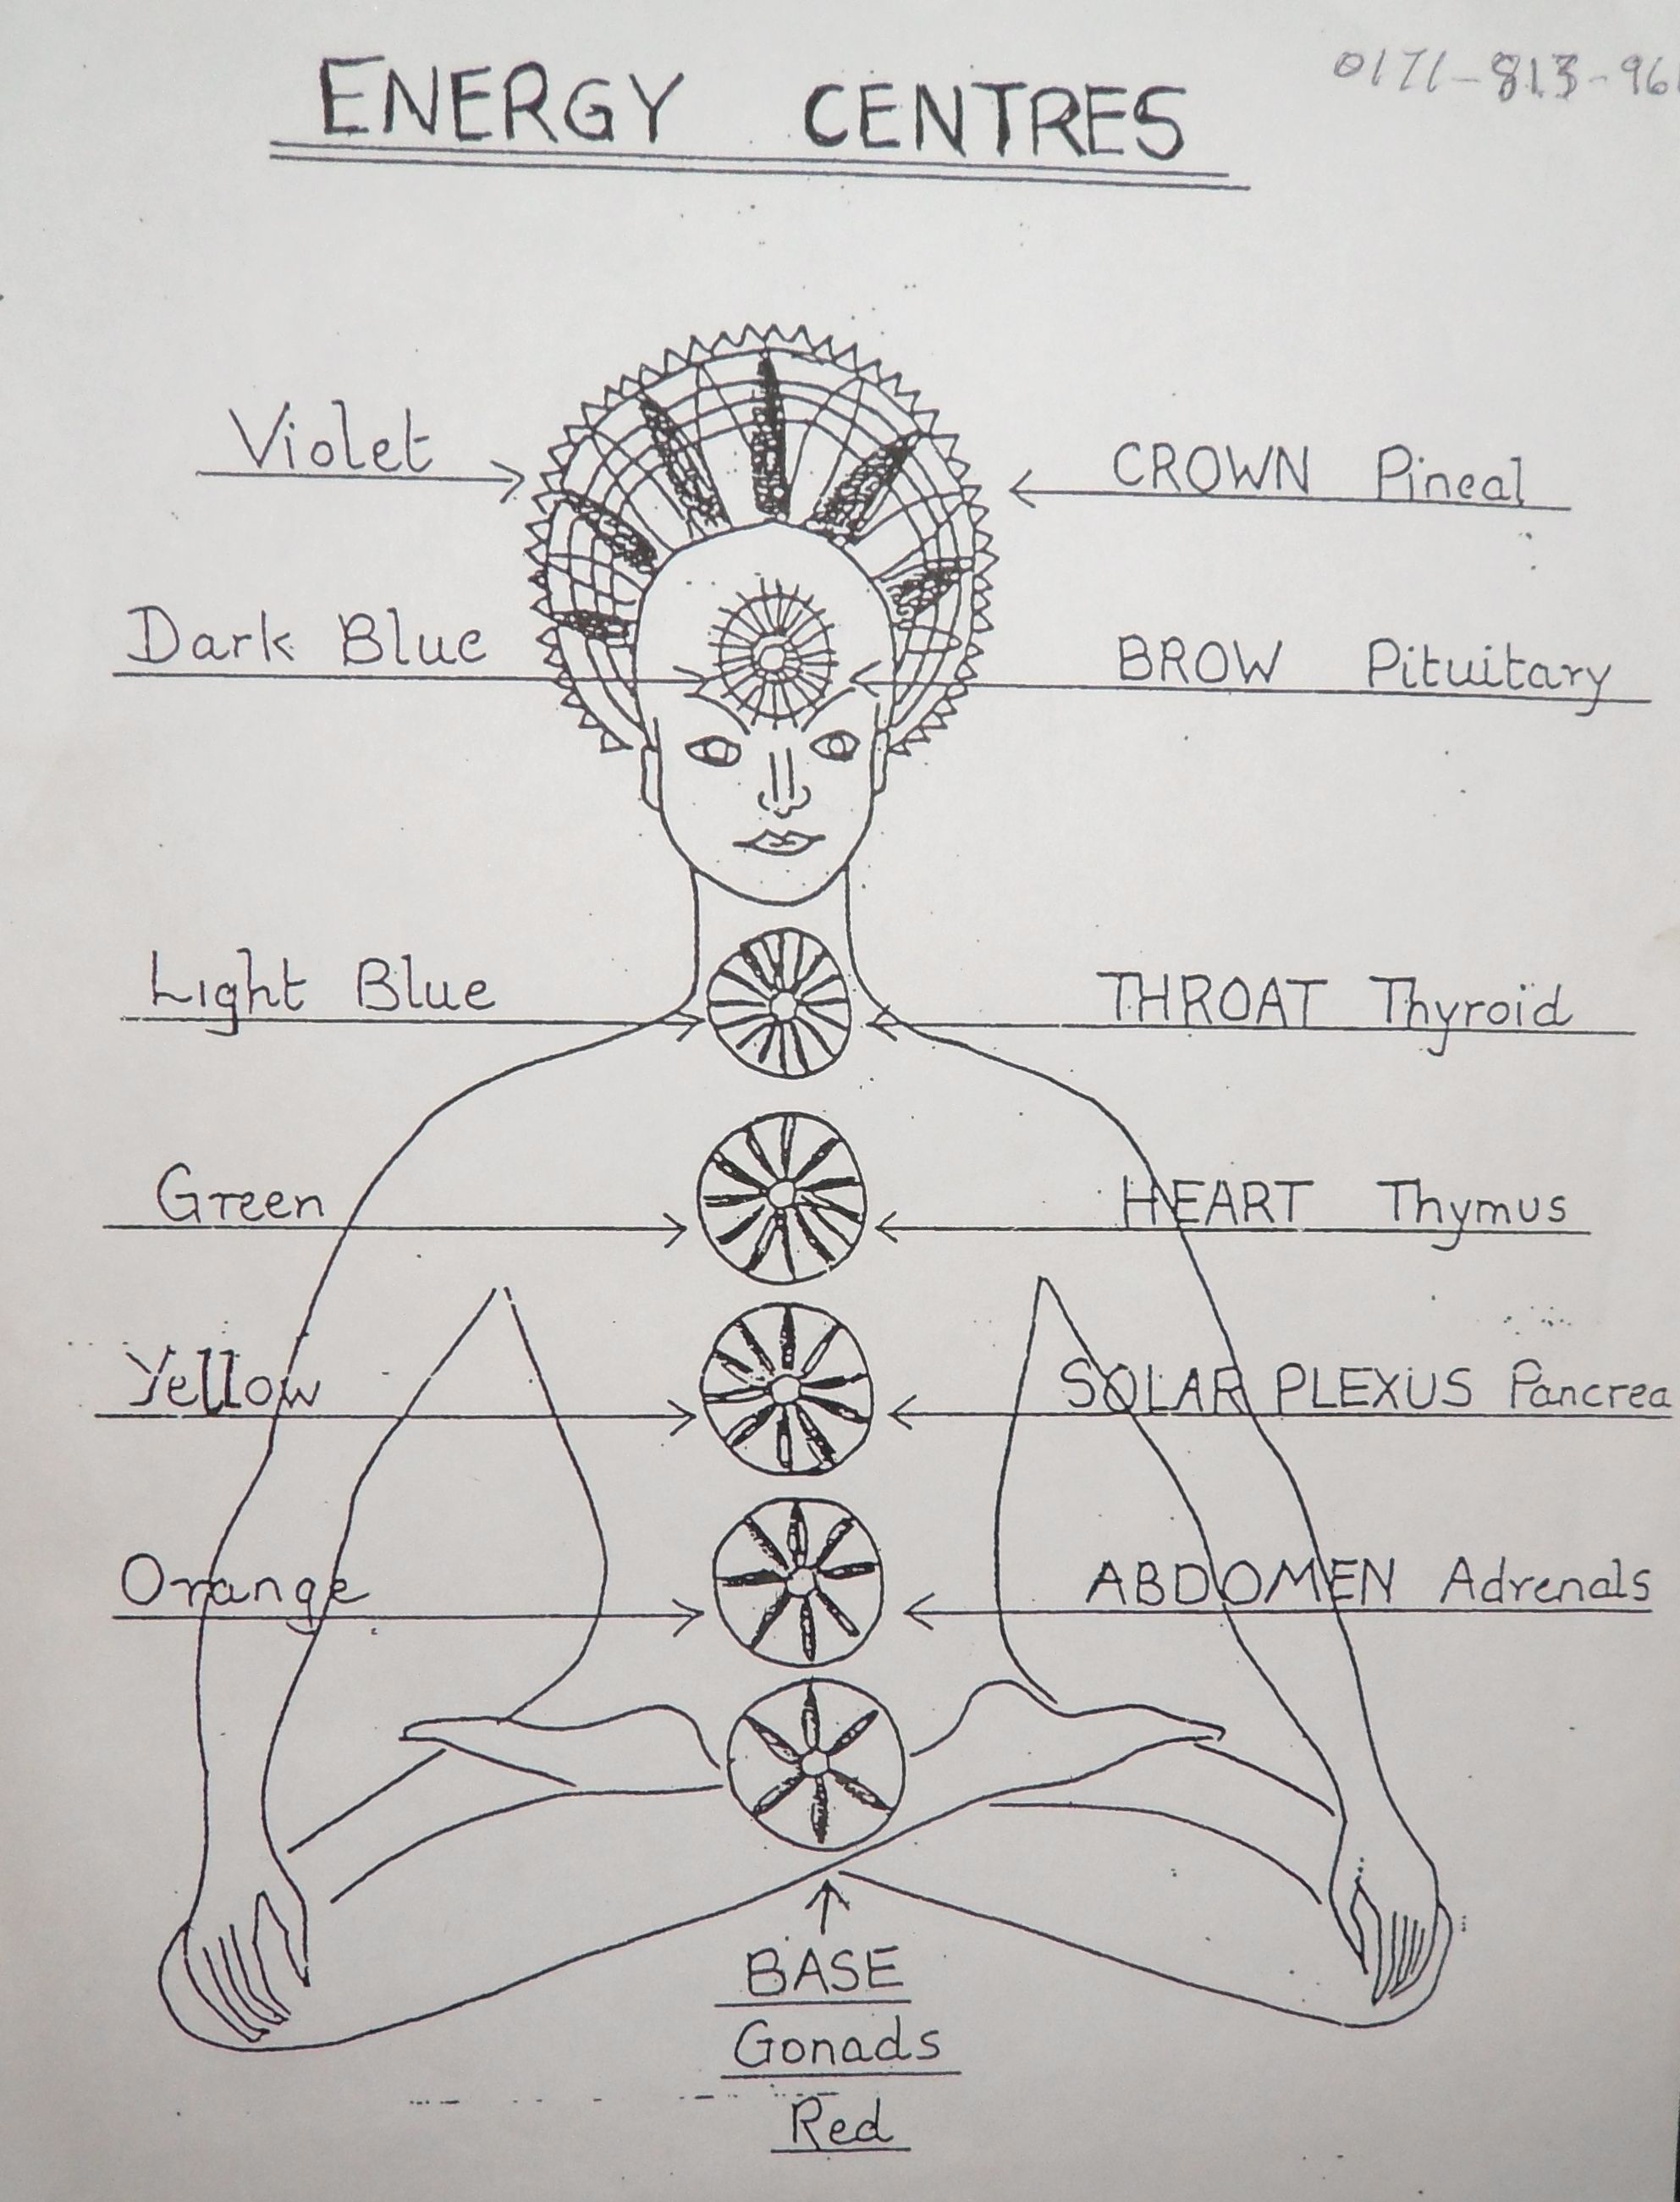 ENERGY CENTRES
0171-813-961
Violet
CROWN Pineal
Dark Blue
BROW Pituitary
Light Blue
THROAT Thyroid
Green
HEART Thymus
Yellow
SOLAR PLEXUS Pancrea
Orange
ABDOMEN Adrenals
BASE
Gonads
Red